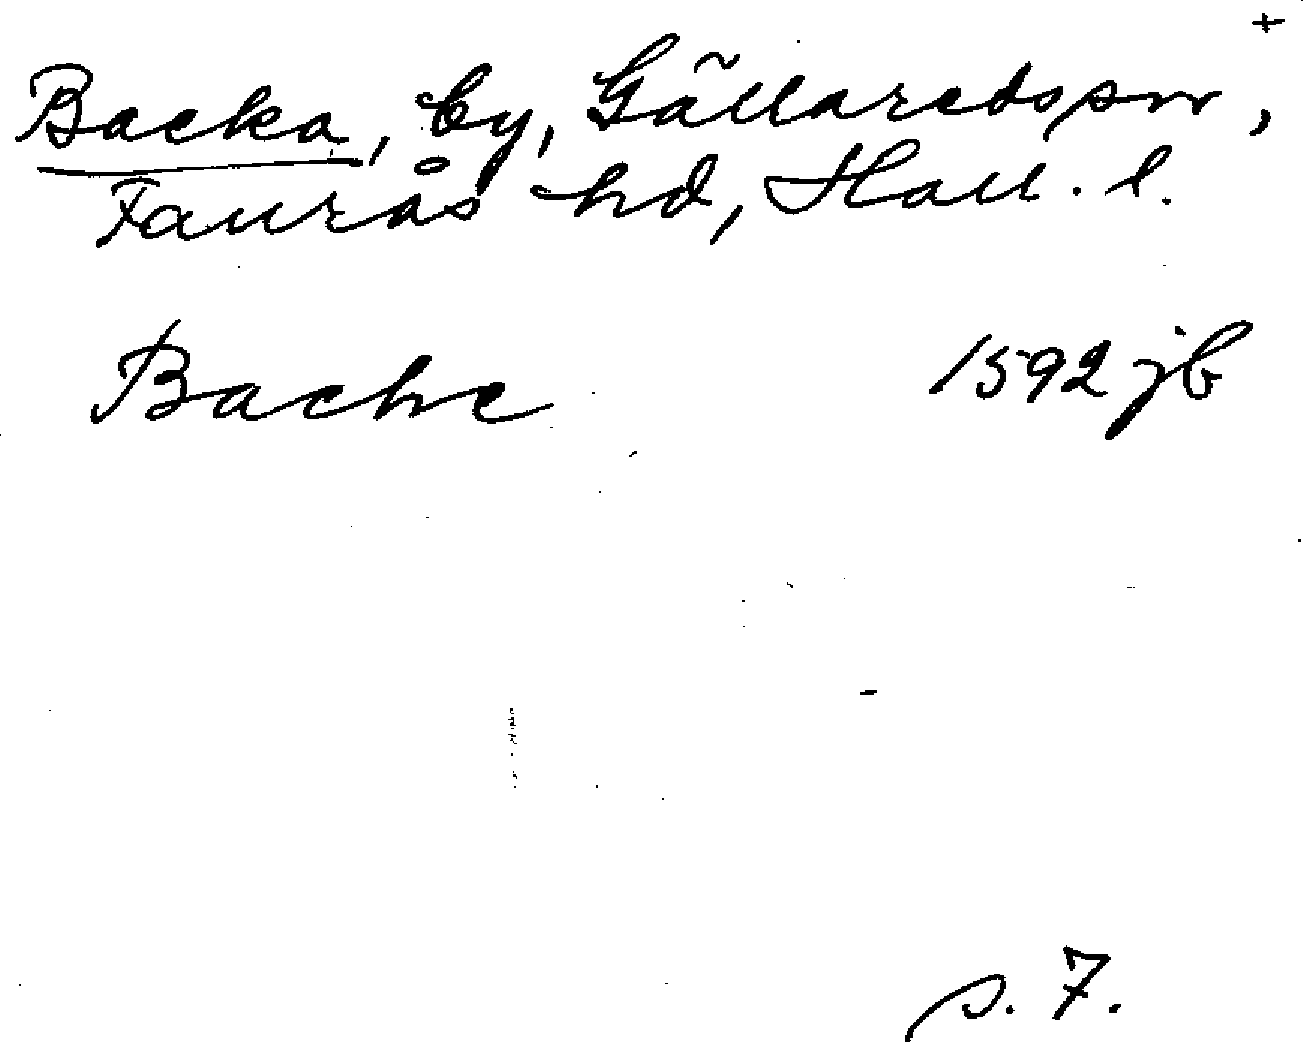 +
Backa, by, Gällareds sn,
Faurås hd, Hall. l.
Backe 1592 jb
s. 7.